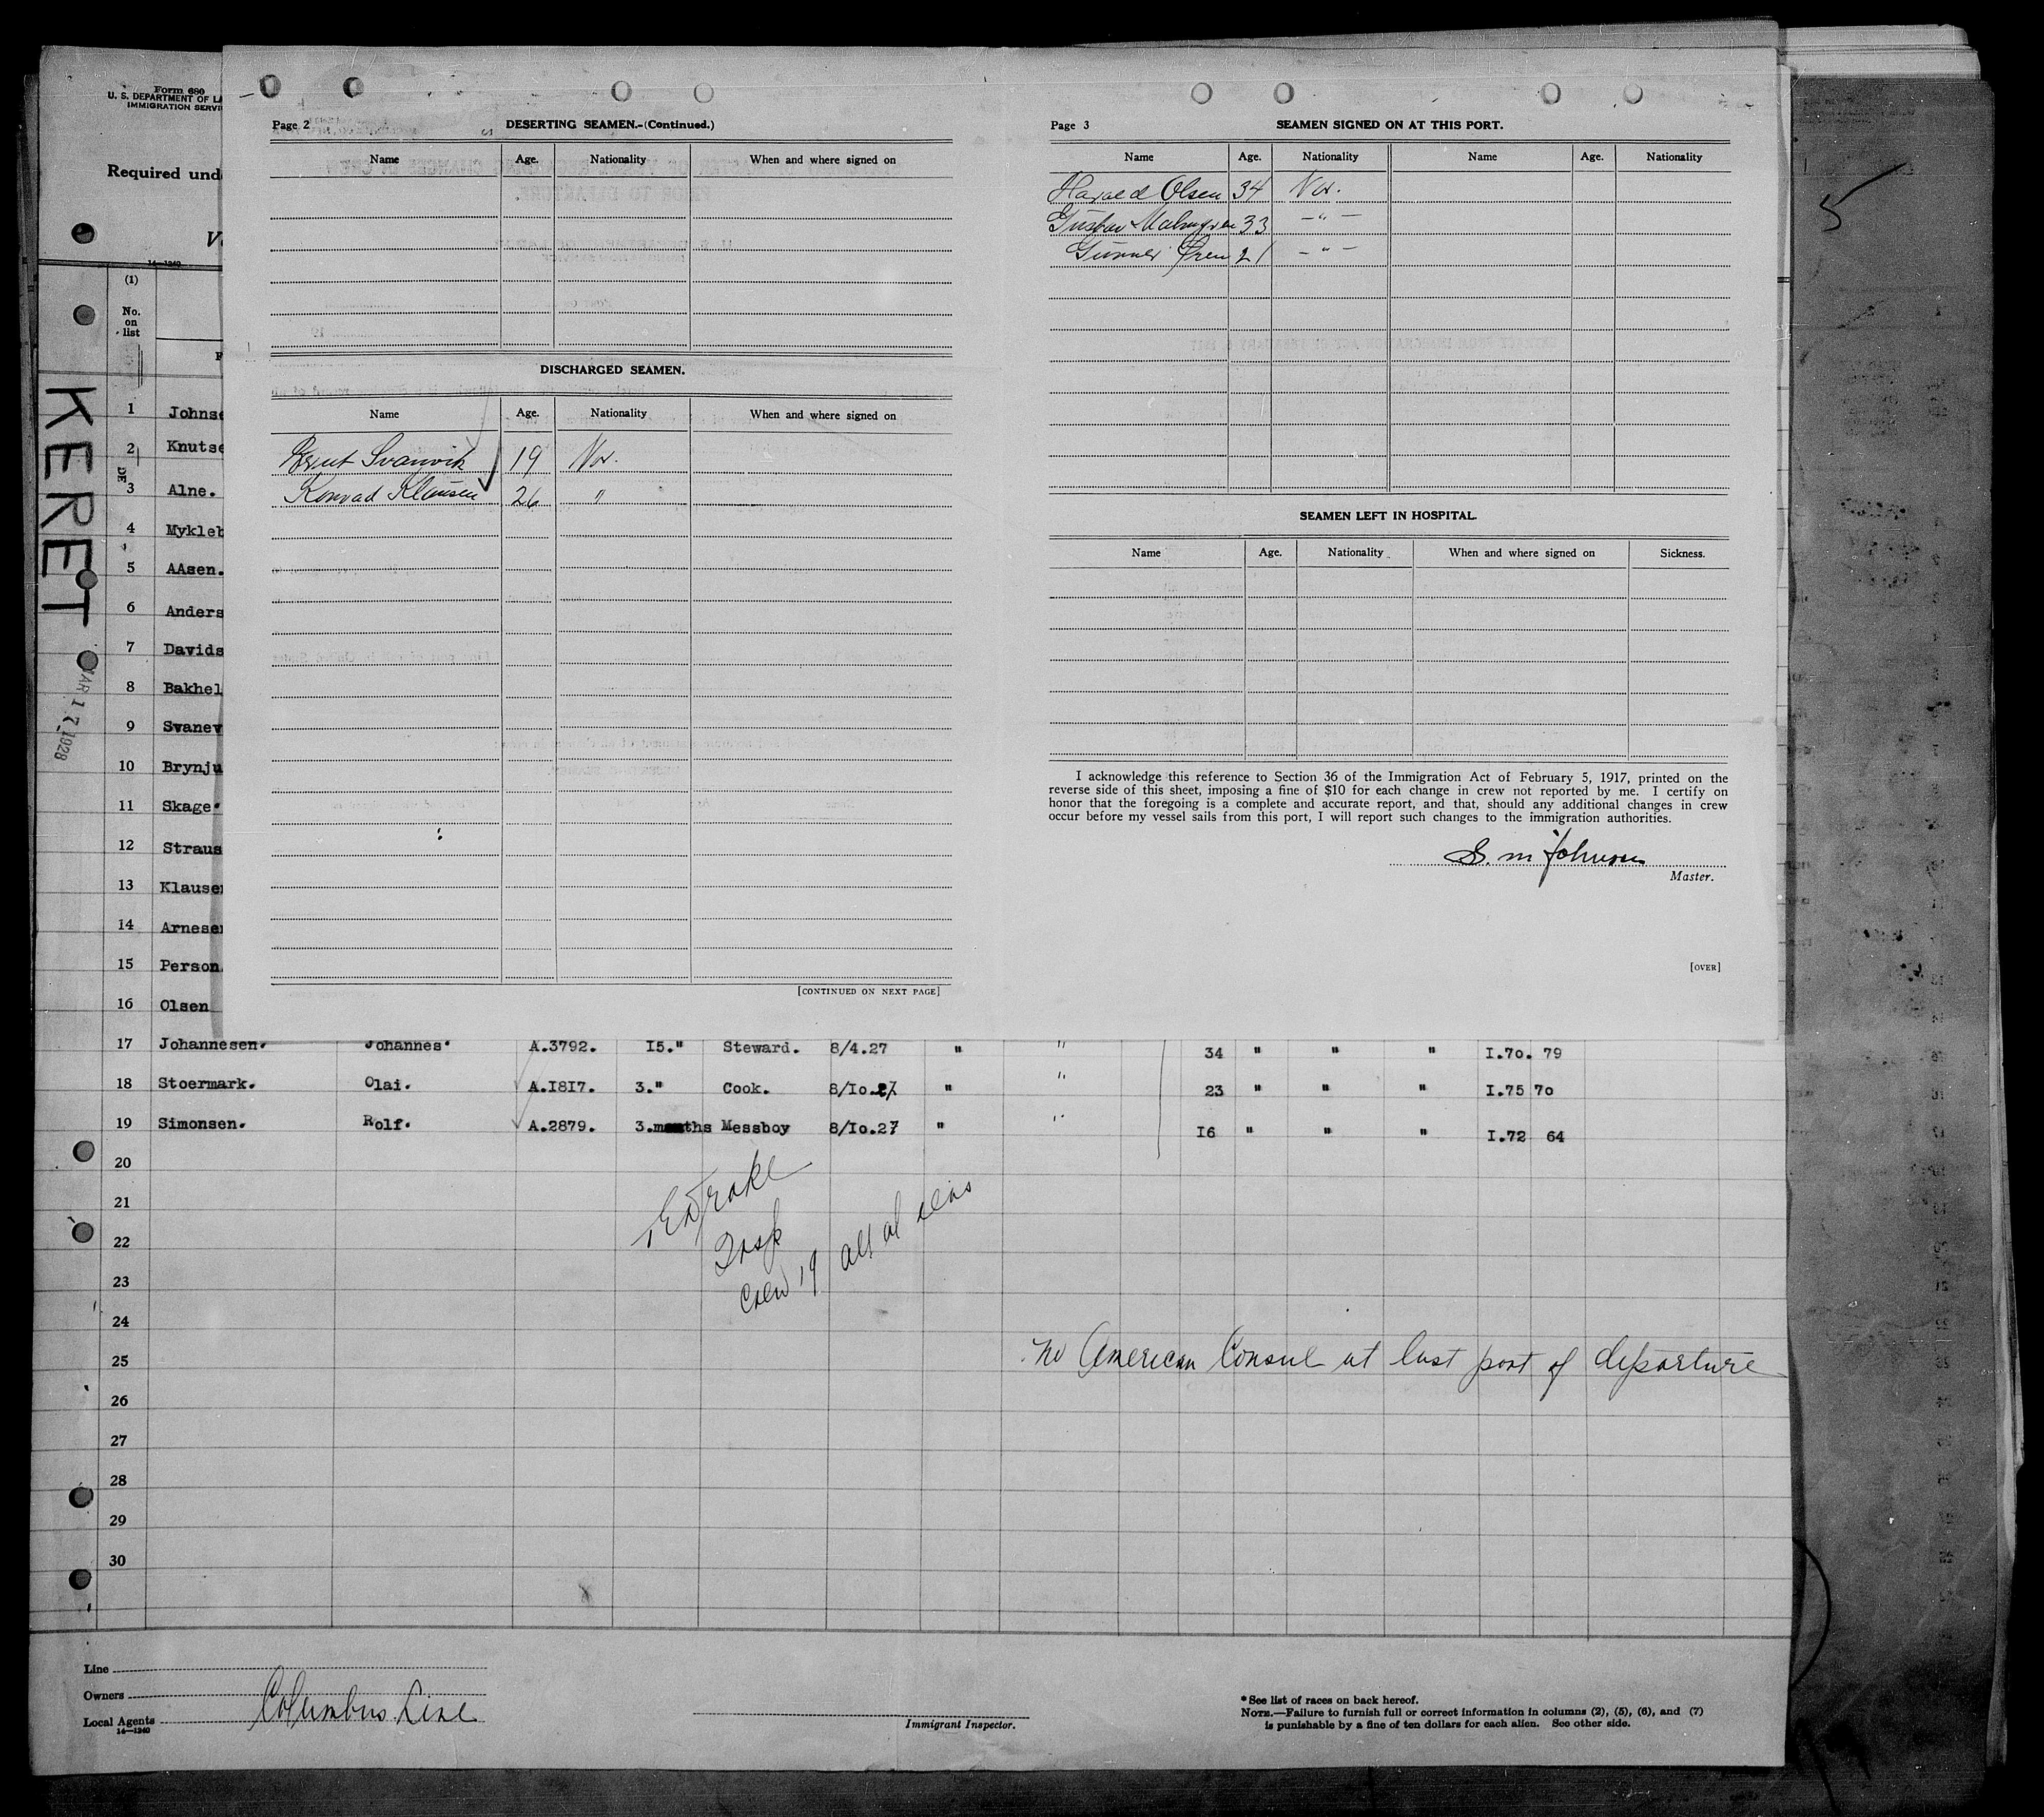 Form 680
U. S. DEPARTMENT OF LA
IMMIGRATION SERVI
Required und
14—1240
(1)
No. on list
KERET
MAR 17 1928
1 Johnse
2 Knutse
3 Alne.
4 Mykleb
5 AAsen.
6 Anders
7 Davids
8 Bakhel
9 Svanev
10 Brynju
11 Skage.
12 Straus
13 Klausen
14 Arnesen
15 Person
16 Olsen
Page 2 DESERTING SEAMEN.-(Continued.)
Name Age. Nationality When and where signed on
DISCHARGED SEAMEN.
Name Age. Nationality When and where signed on
Svanvik 19 Nor.
Konrad Klausen 26 "
[CONTINUED ON NEXT PAGE]
Page 3 SEAMEN SIGNED ON AT THIS PORT.
Name Age. Nationality Name Age. Nationality
Harald Olsen 34 Nor.
Gustav Malmgren 33 — " —
Gunner 21 — " —
SEAMEN LEFT IN HOSPITAL.
Name Age. Nationality When and where signed on Sickness.
I acknowledge this reference to Section 36 of the Immigration Act of February 5, 1917, printed on the
reverse side of this sheet, imposing a fine of $10 for each change in crew not reported by me. I certify on
honor that the foregoing is a complete and accurate report, and that, should any additional changes in crew
occur before my vessel sails from this port, I will report such changes to the immigration authorities.
S. M Johnsen
Master.
[OVER]
5
17 Johannesen. Johannes. A.3792. I5." Steward. 8/4.27 " " 34 " " " I.70. 79
18 Stoermark. Olai. A.I8I7. 3." Cook. 8/Io.27 " " 23 " " " I.75 70
19 Simonsen. Rolf. A.2879. 3.months Messboy 8/Io.27 " " I6 " " " I.72 64
20
21
22
23
24
25
26
27
28
29
30
Drake
Insp
Crew 19 all aliens
No American Consul at last port of departure
Line
Owners
Local Agents Columbus Line
14—1240
Immigrant Inspector.
*See list of races on back hereof.
NOTE.—Failure to furnish full or correct information in columns (2), (5), (6), and (7)
is punishable by a fine of ten dollars for each alien. See other side.